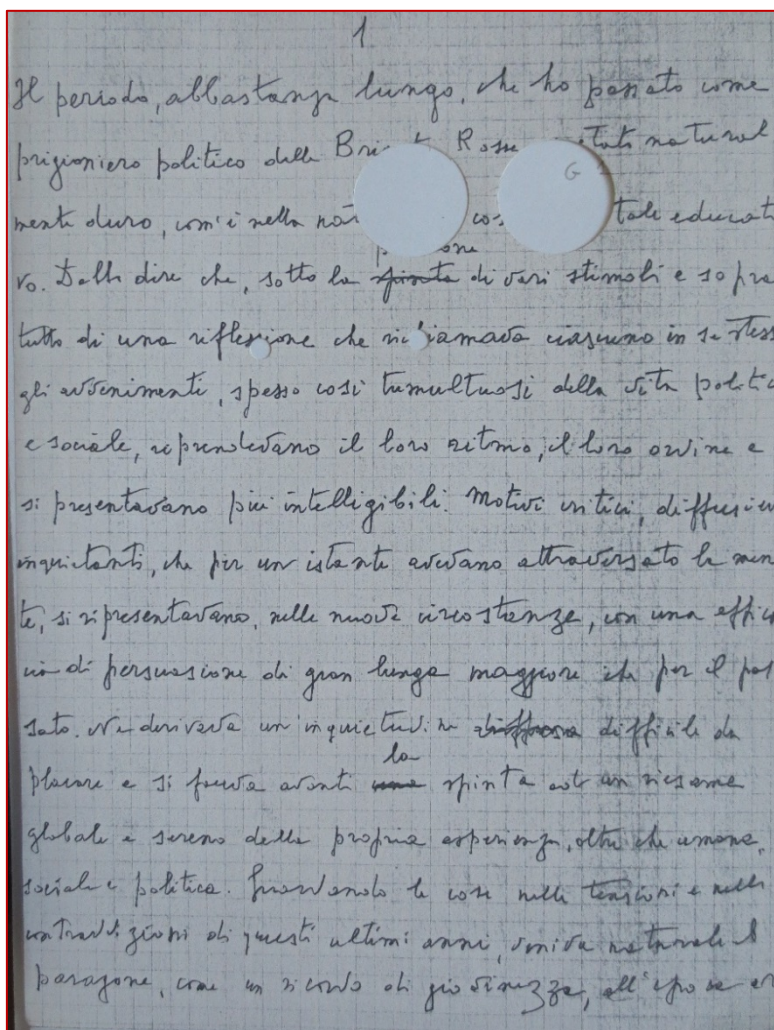 1
Il periodo, abbastanza lungo, che ho passato come
prigioniero politico delle Bri Rosse stato natural
mente duro, com'è nella cos tale educati
vo. Debbo dire che, sotto la pressione spinta di vari stimoli e sopra
tutto di una riflessione che richiamava ciascuno in se stess
gli avvenimenti, spesso così tumultuosi della vita politic
e sociale, riprendevano il loro ritmo, il loro ordine e
si presentavano più intelligibili. Motivi critici, diffusi ed
inquietanti, che per un istante avevano attraversato la men
te, si ripresentavano, nelle nuove circostanze, con una effica
cia di persuasione di gran lunga maggiore che per il pas
sato. Ne derivava un'inquietudine diffusa difficile da
placare e si faceva avanti una la spinta ad un riesame
globale e sereno della propria esperienza, oltre che umana,
sociale e politica. Guardando le cose nelle tensioni e nelle
contraddizioni di questi ultimi anni, veniva naturale il
paragone, come un ricordo di giovinezza, all'epoca or
G